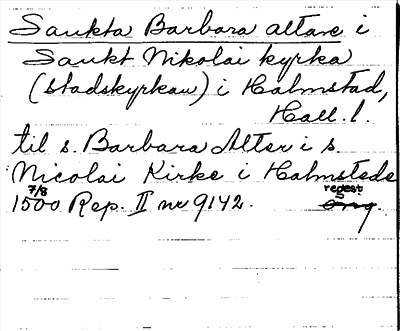 Sankta Barbara altare i
Sankt Nikolai kyrka
(stadskyrkan) i Halmstad,
Hall. l.
til s. Barbara Alter i s.
Nicolai Kirke i Halmstede
7/8
1500 Rep. II nr 9142. regest
orig.